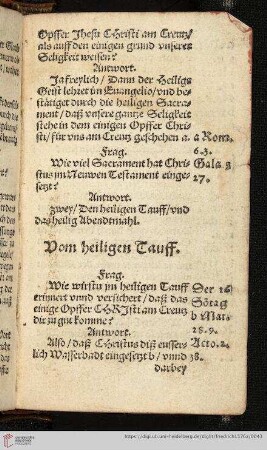 Opffer Jhesu CHristi am Creutz/
als auff den einigen grund vnserer
Seligkeit weisen?
Antwort.
Ja freylich / Dann der Heilige
Geist lehret im Euangelio/vnd be-
stätiget durch die heiligen Sacra-
ment / daß vnsere gantze Seligkeit
stehe in dem einigen Opffer Chri-
sti/für vns am Creutz geschehen a. a Rom.
Frag. 6.3.
Wie viel Sacrament hat Chris- Gala. 3
stus im Newen Testament einge- 27.
setzt?
Antwort.
Zwey/Den heiligen Tauff/vnd
das heilig Abendtmahl.
Vom heiligen Tauff.
Frag.
Wie wirstu im heiligen Tauff Der 26
erinnert vnnd versichert / daß das Sōtag
einige Opffer CHRJsti am Creutz b Mat.
dir zu gut komme? 28.9.
Antwort. Acto. 2.
Also / daß Christus diß eusser- 38.
lich Wasserbadt eingesetzt b / vnnd
darbey